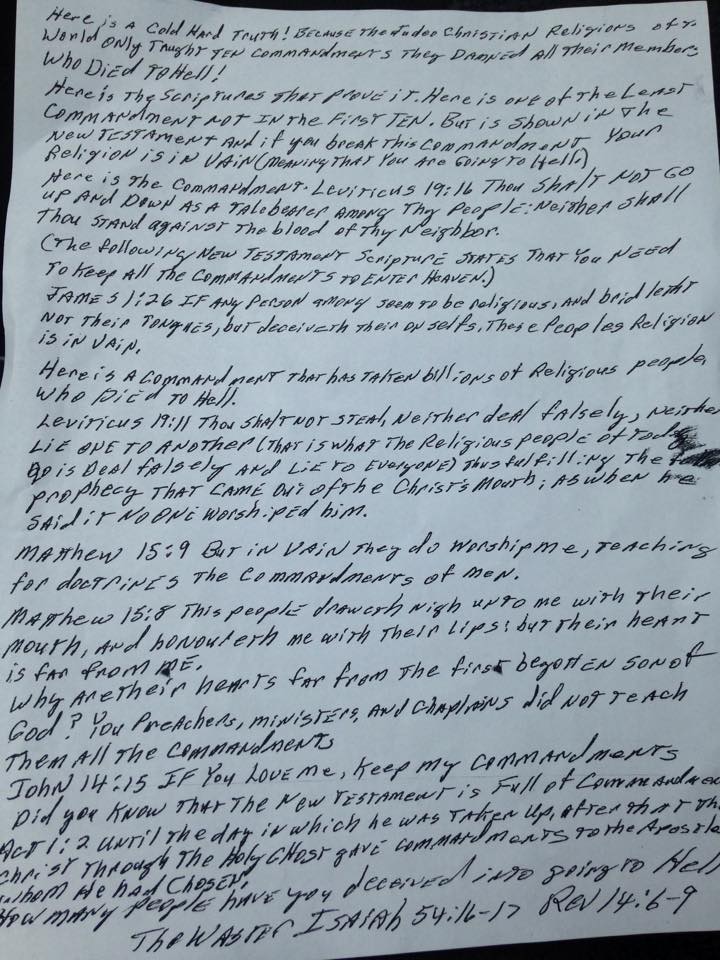 Here is a Cold Hard Truth! Because the Judeo Christian Religions of
World Only Taught Ten Commandments They Damned All Their Members
Who Died To Hell!
Here is The Scriptures That Prove it. Here is one of The Least
Commandment not In the First Ten. But is Shown in The
New Testament And if you break This Commandment Your
Religion is in Vain (Meaning That You Are Going to Hell)
Here is The Commandment. Leviticus 19:16 Thou Shalt Not Go
up And Down As a Talebearer Among Thy People: Neither Shall
Thou Stand against The blood of Thy Neighbor.
(The following New Testament Scripture States That You Need
To Keep All the Commandments to Enter Heaven.)
James 1:26 If Any Person among seem to be religious, And bridleth
Not Their Tongues, but deceiveth their on selfs, These Peoples Religion
is in Vain.
Here is A Commandment That has Taken billions of Religious people,
Who Died To Hell.
Leviticus 19:11 Thou Shalt Not Steal, Neither deal falsely, Neither
Lie one To Another (That is what The Religious people of
go is Deal falsely And Lie To Everyone) Thus fulfilling The
prophecy That Came Out of the Christ's Mouth; As when he
Said it No One Worshiped him.
Matthew 15:9 But in Vain They do Worship me, Teaching
for doctrines The Commandments of Men.
Matthew 15:8 This people draweth nigh unto me with Their
Mouth, And honoureth me with Their Lips: but Their heart
is far from me.
Why Are Their hearts far from The first begotten Son of
God? You Preachers, Ministers, And Chaplains did not Teach
Them All The Commandments
John 14:15 If You Love Me, Keep my Commandments
Did you Know That The New Testament is Full of
Act 1:2 Until The day in which he was Taken Up, after that
Christ Through The Holy Ghost gave Commandments to the
whom He had Chosen:
How many people have you deceived into going to Hell
The Waster Isaiah 54:16-17 Rev 14:6-9